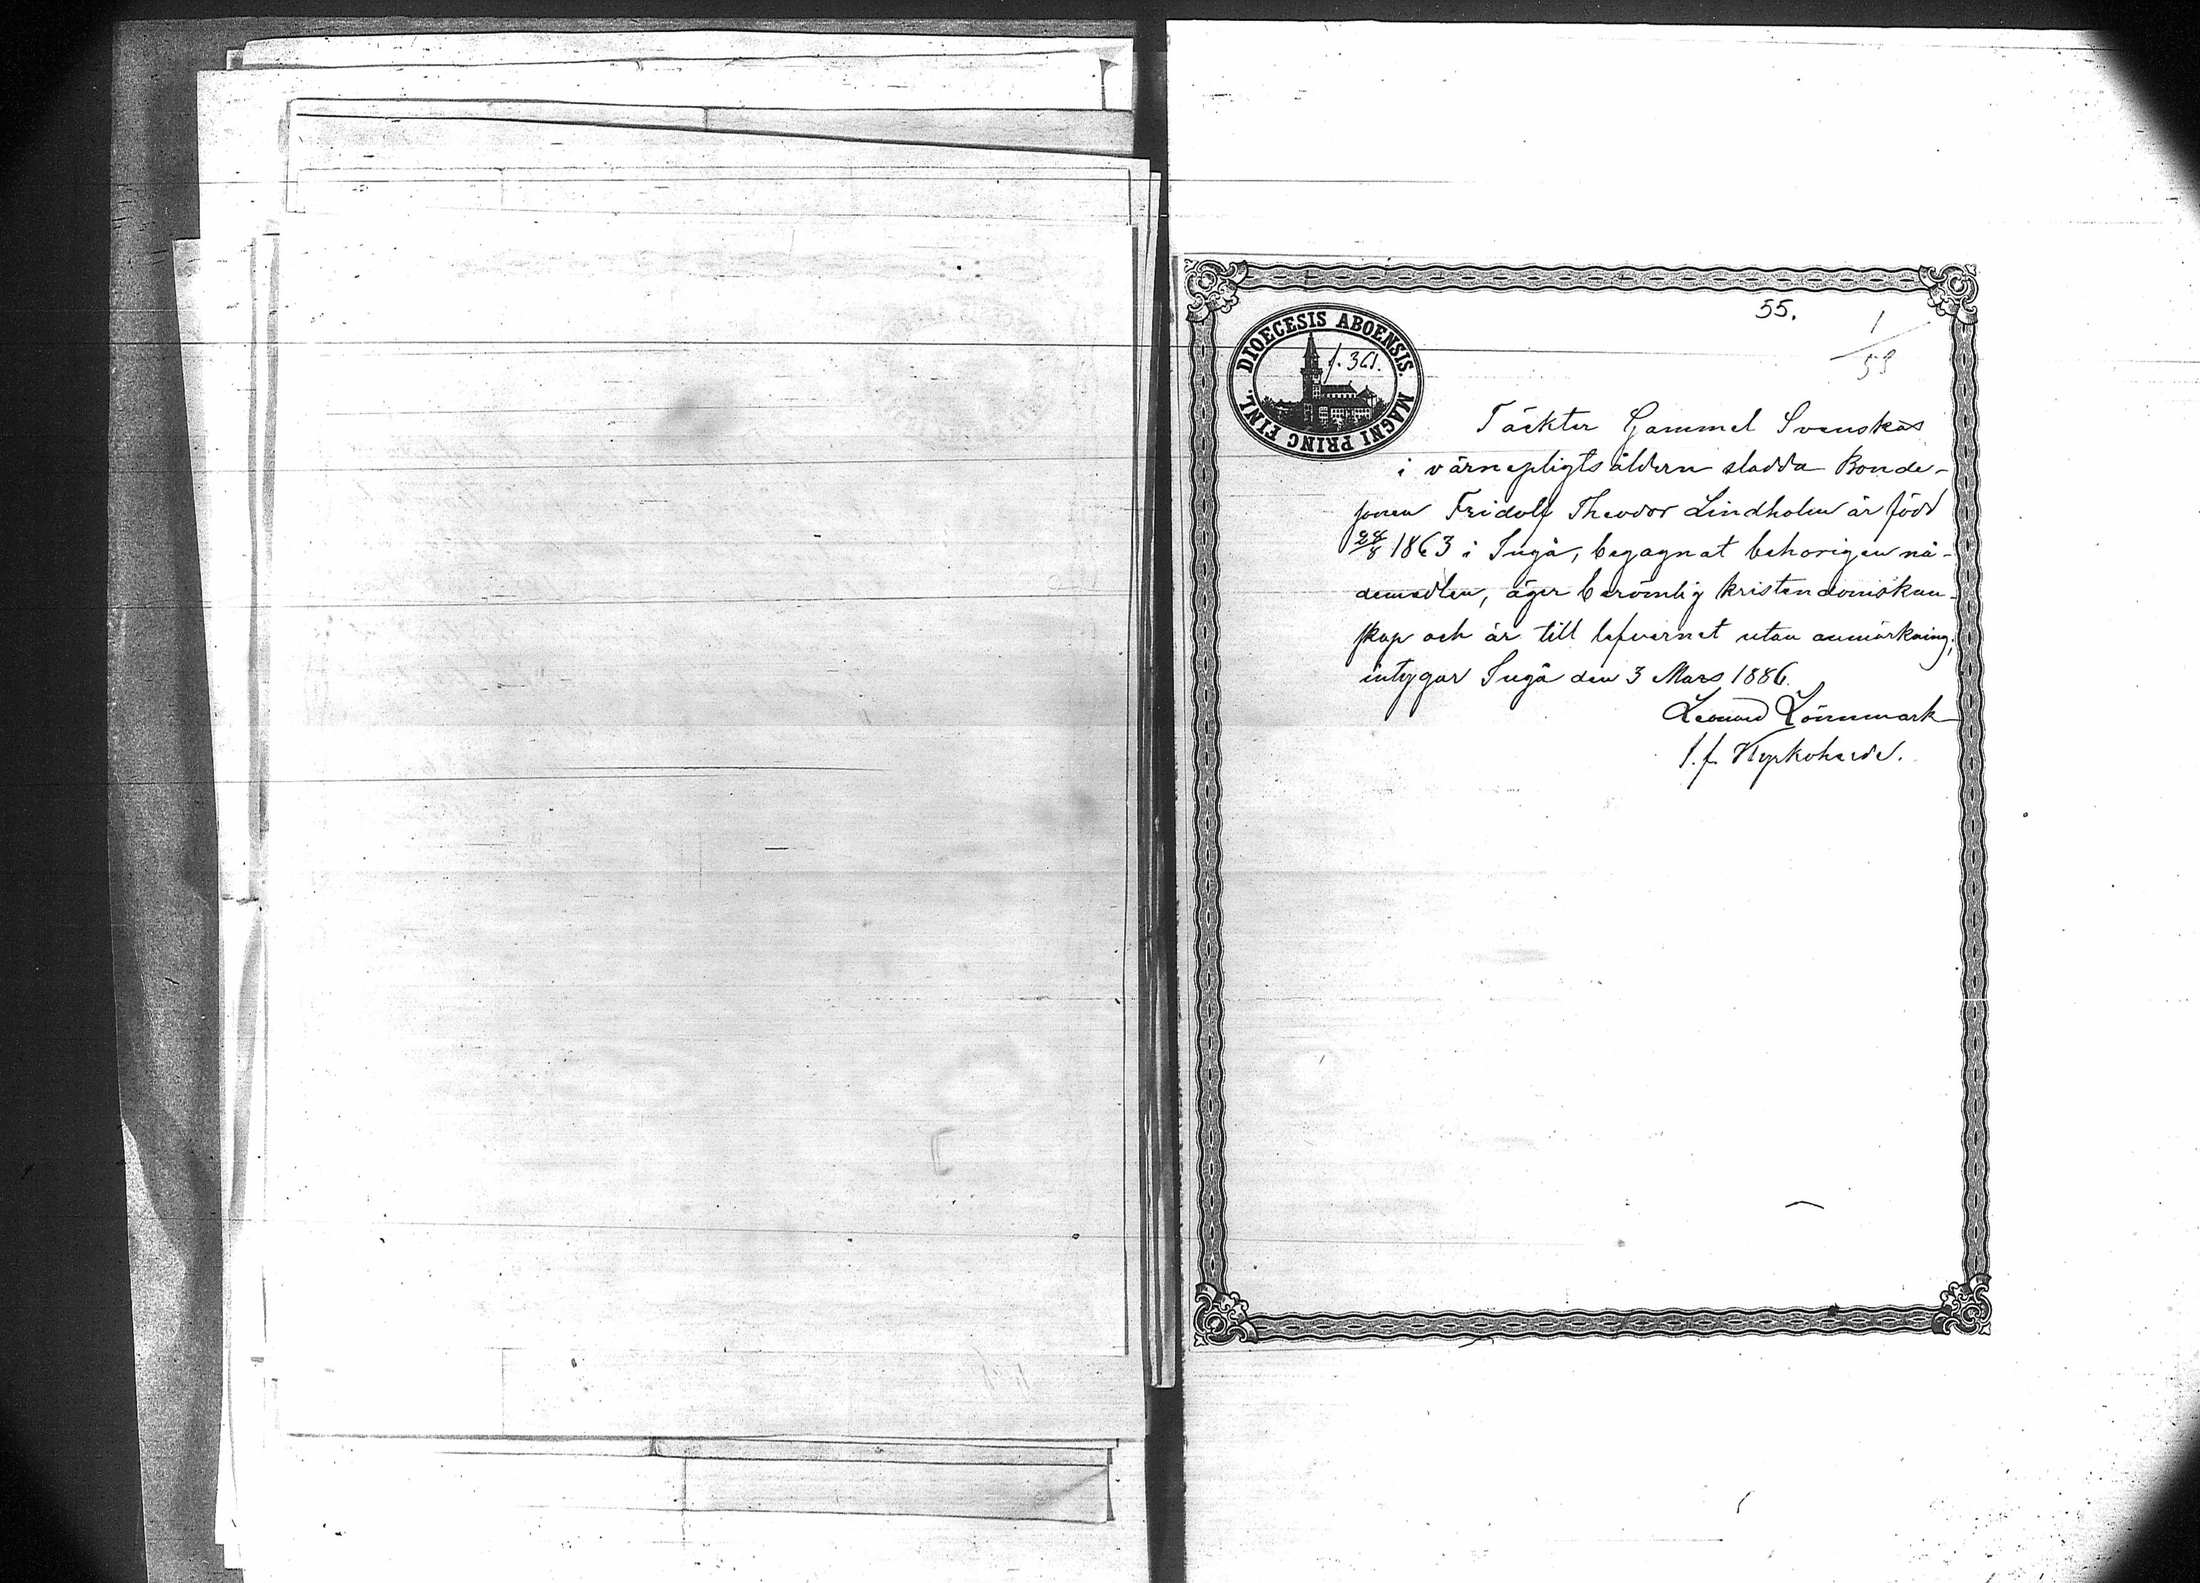 55.
1
59
DIOECESIS ABOENSIS. MAGNI PRINC FINL.
f. 361.
Täckter Gammel Svenskas
i värnepligtsåldern stadda Bonde-
sonen Fridolf Theodor Lindholm är född
28/8 1863 i Ingå, begagnat behörigen nå-
demedlen, äger berömlig kristendomskun-
skap och är till lefvernet utan anmärkning,
intygar Ingå den 3 Mars 1886.
Leonard Lönnmark
t.f. Kyrkoherde.